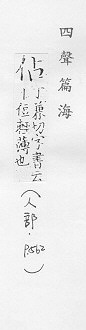 四聲篇海
佔 丁兼切字書云
｜侸輕薄也
(人部·
P562)